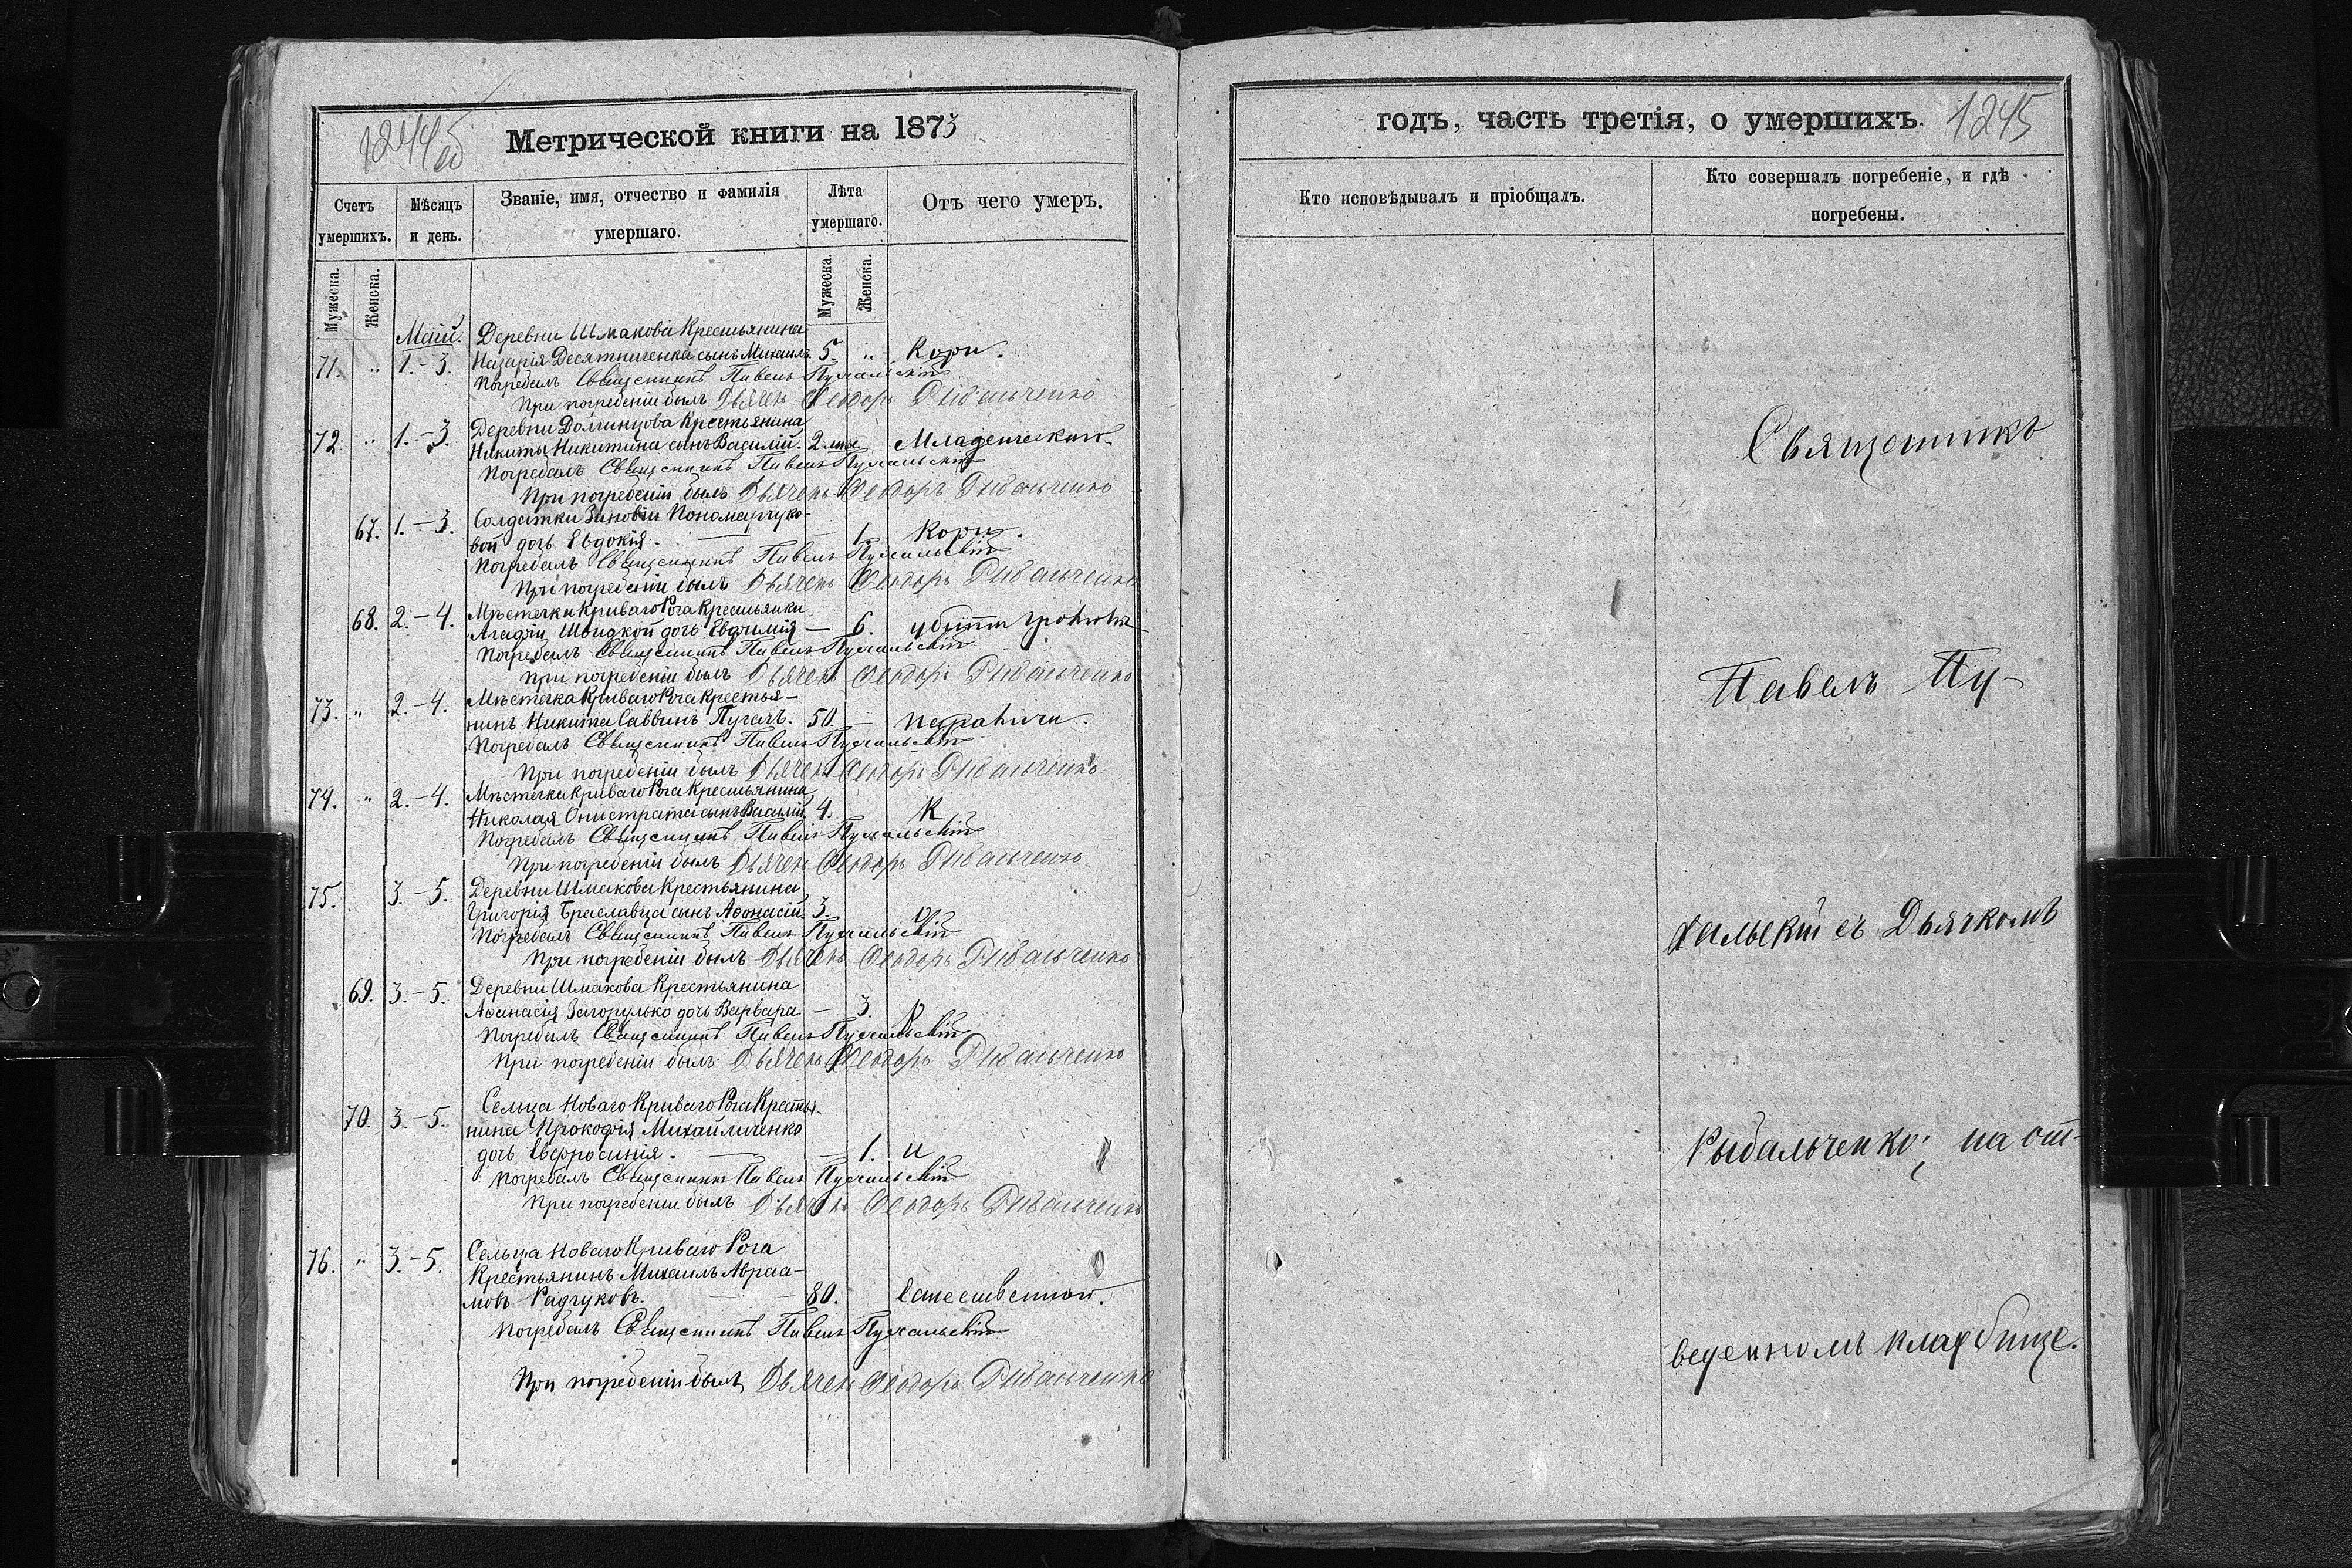 1244об
Метрической книги на 1873
Счетъ умершихъ.
Мѣсяцъ и день.
Званіе, имя, отчество и фамилія умершаго.
Лѣта умершаго.
Отъ чего умеръ.
Мужеска.
Женска.
Мужеска.
Женска.
Май. Деревни Шмакова Крестьянина
71. " 1.-3. Назарія Десятниченка сынъ Михаилъ. 5. " Кори.
Погребалъ Священникъ Павелъ Пухальскій
При погребеніи былъ Дьячекъ Ѳеодоръ Рибальченко
Деревни Долгинцова Крестьянина
72. " 1.-3. Никиты Никитина сынъ Василій. 2 мес Младенческаго.
Погребалъ Священникъ Павелъ Пухальскій
При погребеніи былъ Дьячекъ Ѳеодоръ Рибальченко
67. 1.-3. Солдатки Зиновіи Пономарчуко-
вой дочь Евдокія. 1. Кори.
Погребалъ Священникъ Павелъ Пухальскій
При погребеніи былъ Дьячекъ Ѳеодоръ Рибальченко
68. 2.-4. Мѣстечка Криваго Рога Крестьянки
Агафіи Швидкой дочь Евфимія — 6. убита
Погребалъ Священникъ Павелъ Пухальскій
При погребеніи былъ Дьячекъ Ѳеодоръ Рибальченко
73. " 2.-4. Мѣстечка Криваго Рога Крестья-
нинъ Никита Саввинъ Пугачъ. 50. —
Погребалъ Священникъ Павелъ Пухальскій
При погребеніи былъ Дьячекъ Ѳеодоръ Рибальченко
74. " 2.-4. Мѣстечка Криваго Рога Крестьянина
Николая Онистрата сынъ Василій. 4. К
Погребалъ Священникъ Павелъ Пухальскій
При погребеніи былъ Дьячекъ Ѳеодоръ Рибальченко
75. 3.-5. Деревни Шмакова Крестьянина
Григорія Браславца сынъ Аѳонасій. 3.
Погребалъ Священникъ Павелъ Пухальскій
При погребеніи былъ Дьячекъ Ѳеодоръ Рибальченко
69. 3.-5. Деревни Шмакова Крестьянина
Аѳанасія Загорулько дочь Варвара — 3.
Погребалъ Священникъ Павелъ Пухальскій
При погребеніи былъ Дьячекъ Ѳеодоръ Рибальченко
70. 3.-5. Сельца Новаго Криваго Рога Крестья-
нина Прокофія Михайличенко
дочь Евфросинія. — — 1. и
Погребалъ Священникъ Павелъ Пухальскій
При погребеніи былъ Дьячекъ Ѳеодоръ Рибальченко
76. " 3.-5. Сельца Новаго Криваго Рога
Крестьянинъ Михаилъ Авраа-
мовъ Радчуковъ. — — 80. Естественной.
Погребалъ Священникъ Павелъ Пухальскій
При погребеніи былъ Дьячекъ Ѳеодоръ Рибальченко
годъ, часть третія, о умершихъ. 1245
Кто исповѣдывалъ и пріобщалъ.
Кто совершалъ погребеніе, и гдѣ
погребены.
Священникъ
Павелъ Пу-
хальскій съ Дьячкомъ
Рыбальченко; на от-
веденномъ кладбище.